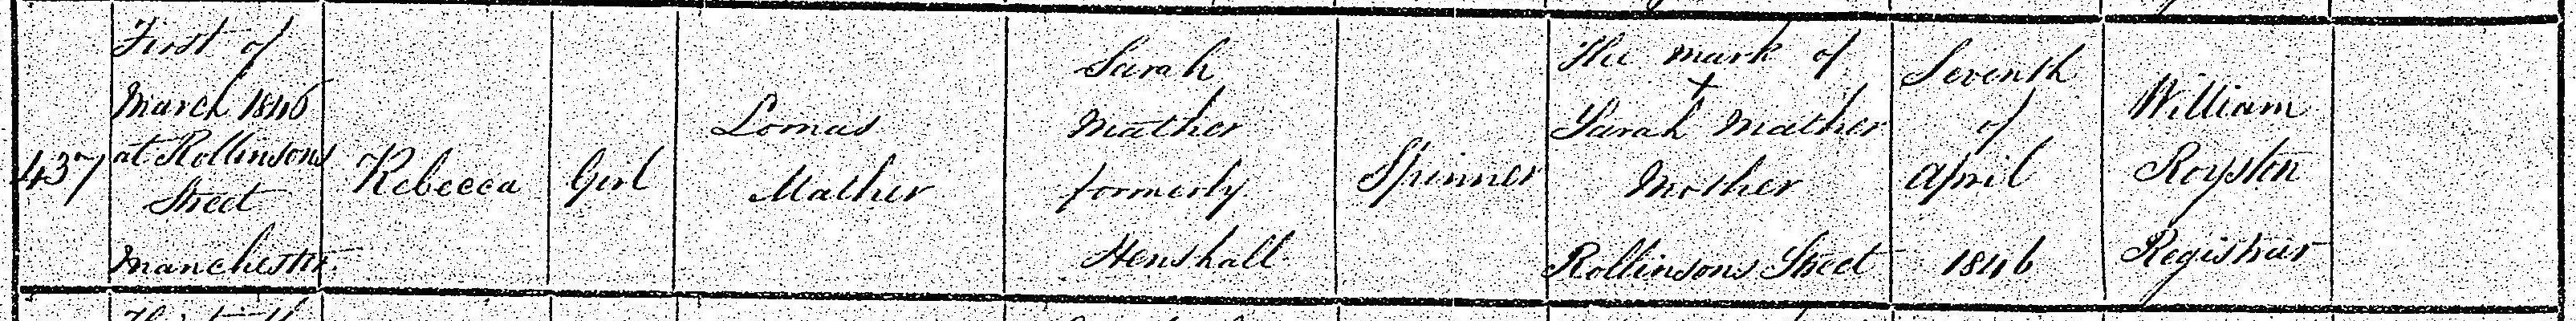 437
First of
March 1846
at Rollinsons
Street
Manchester.
Rebecca
Girl
Lomas
Mather
Sarah
Mather
formerly
Henshall
Spinner
The mark of
+
Sarah Mather
Mother
Rollinsons Street
Seventh
of
April
1846
William
Royston
Registrar